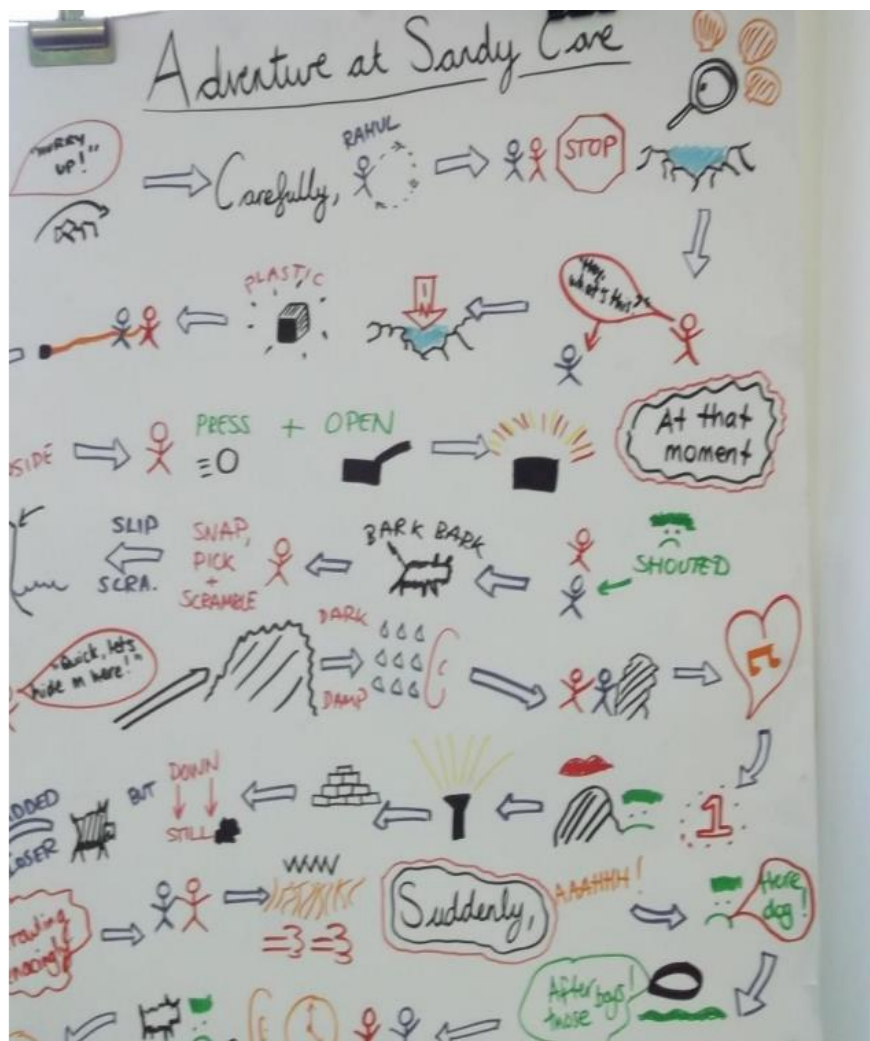 Adventure at Sandy Cove
"HURRY
UP!"
Carefully,
RAHUL
STOP
"Hey,
what's this?"
PLASTIC
SIDE
PRESS + OPEN
At that
moment
SLIP
SCRA.
SNAP,
PICK
+
SCRAMBLE
BARK BARK
SHOUTED
"Quick, let's
hide in here!"
DARK
DAMP
DDED
LOSER
BUT
DOWN
STILL
1
rowling
enacingly
Suddenly,
AAAHHH!
Here,
dog!
After
those
boys!